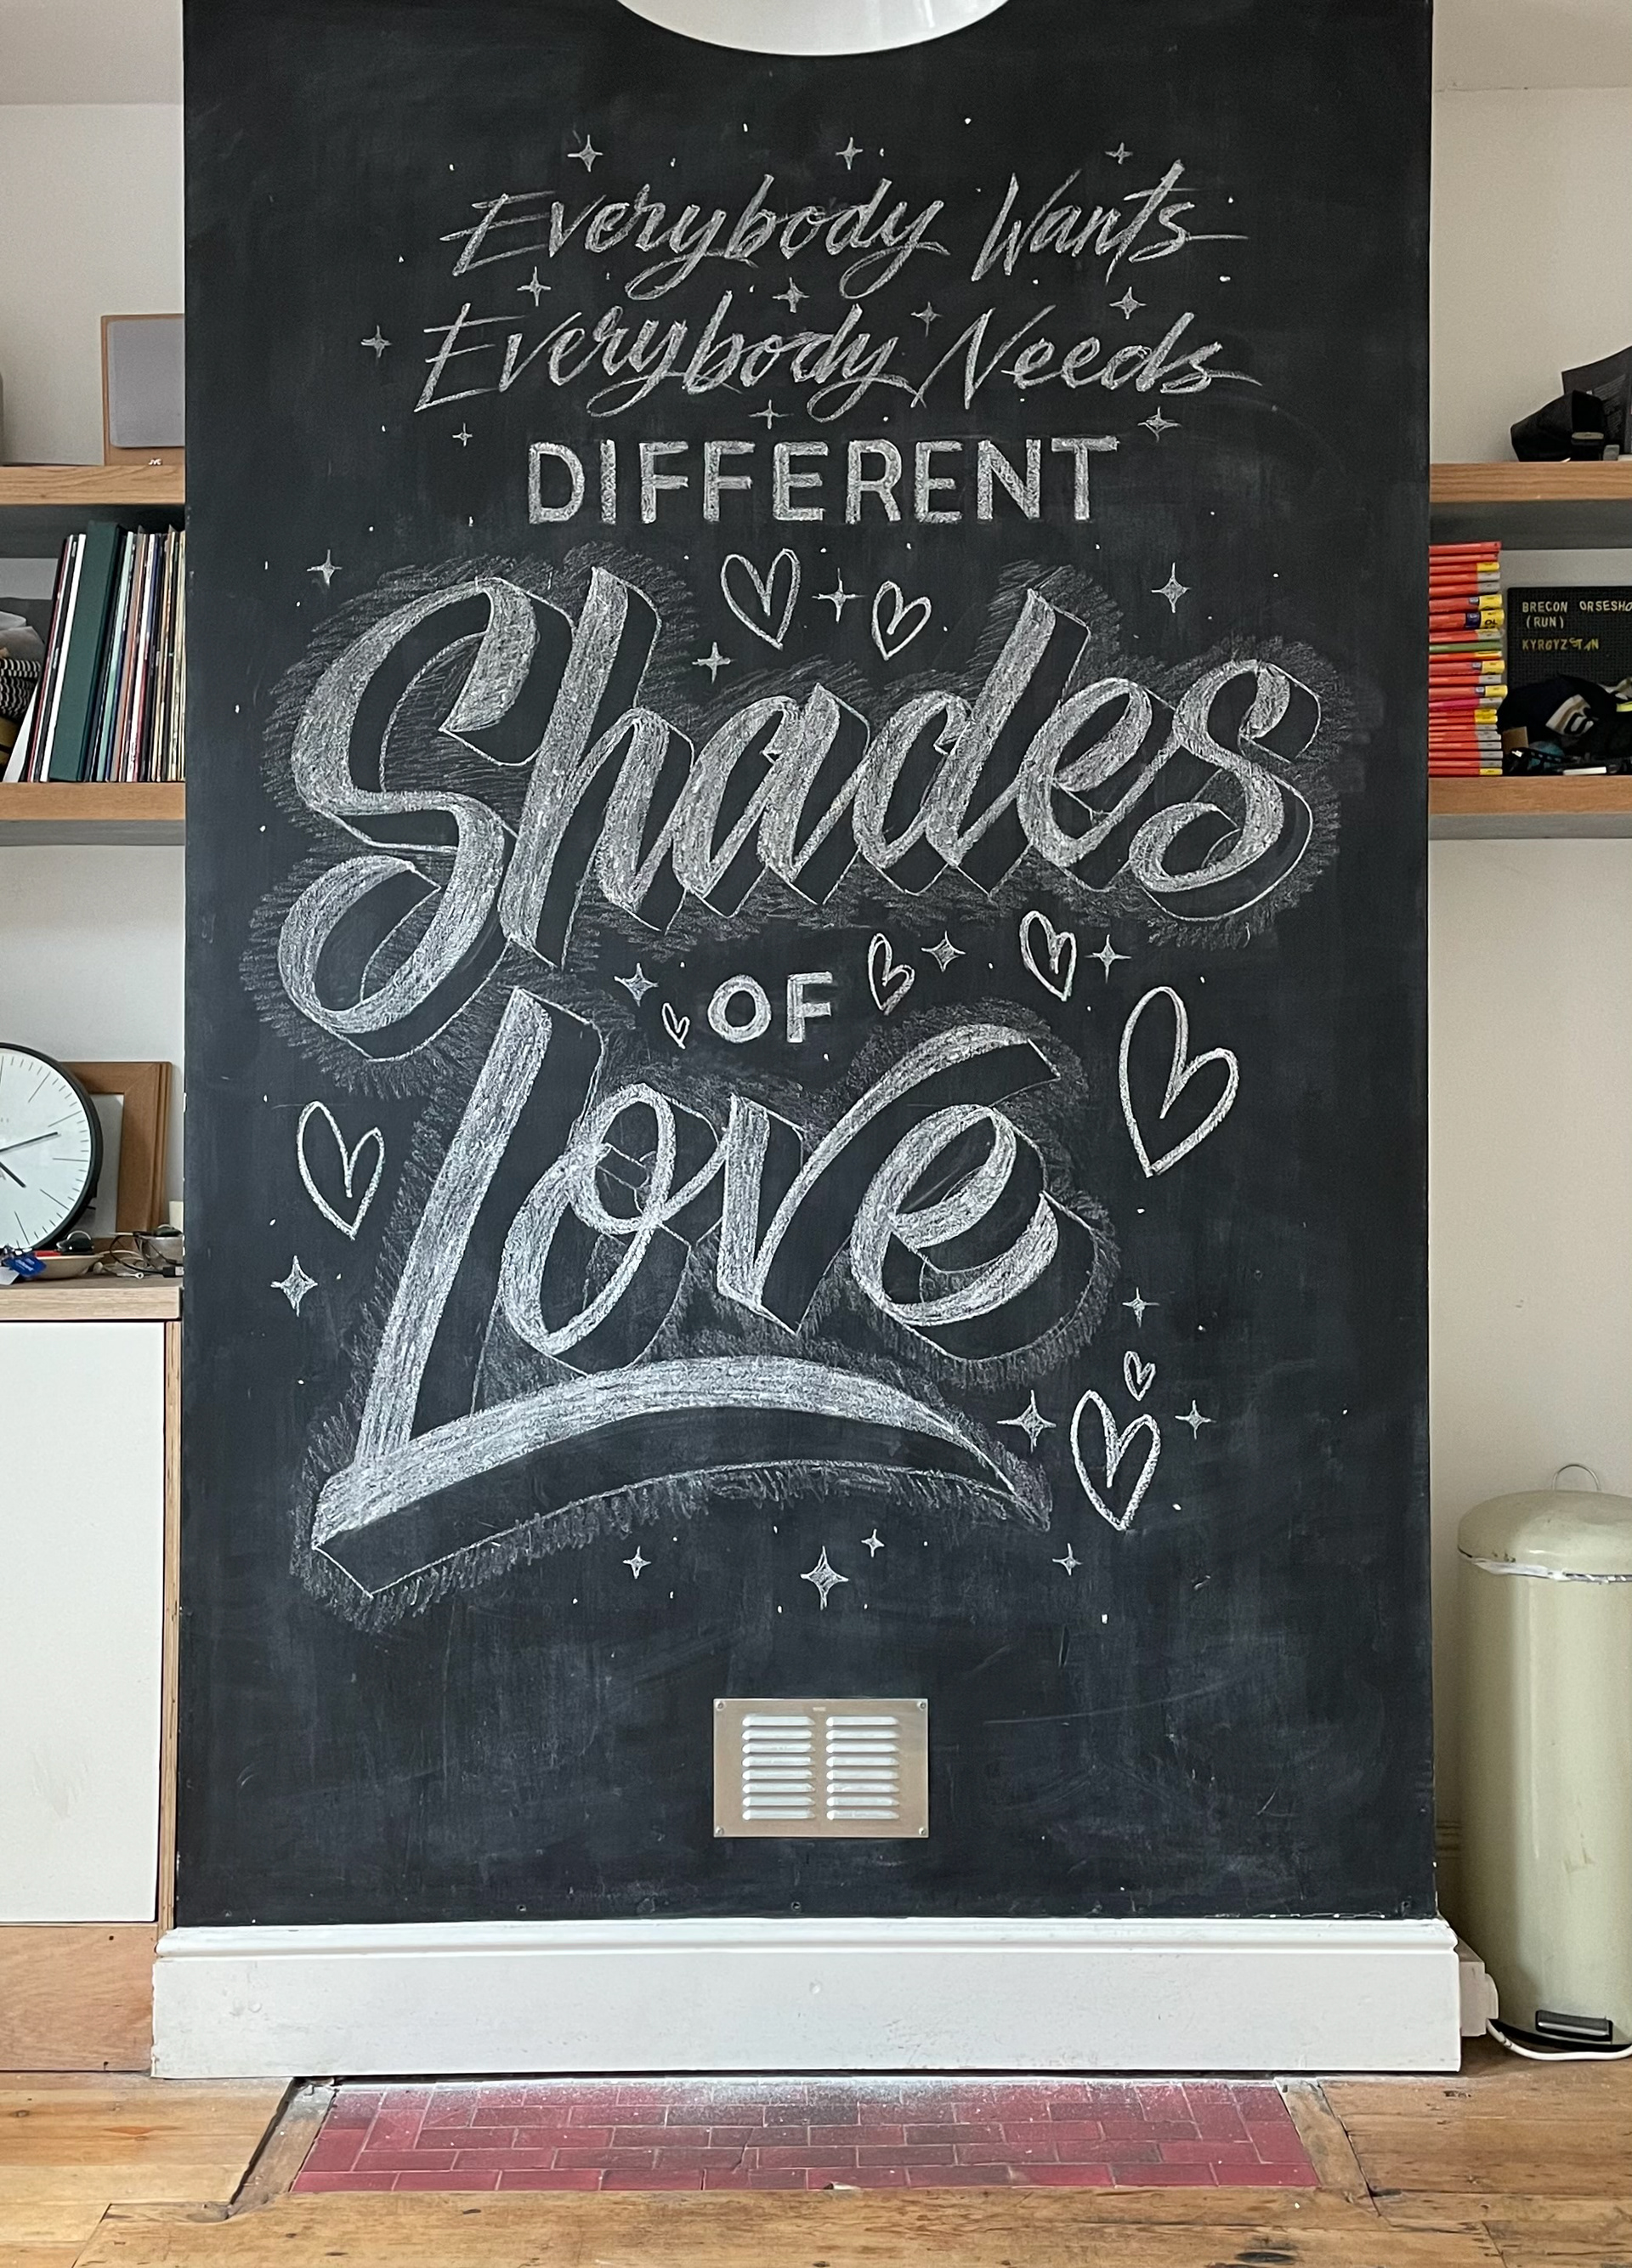 Everybody Wants
Everybody Needs
DIFFERENT
Shades
OF
Love
BRECON ORSESHO
(RUN)
KYRGYZSTAN